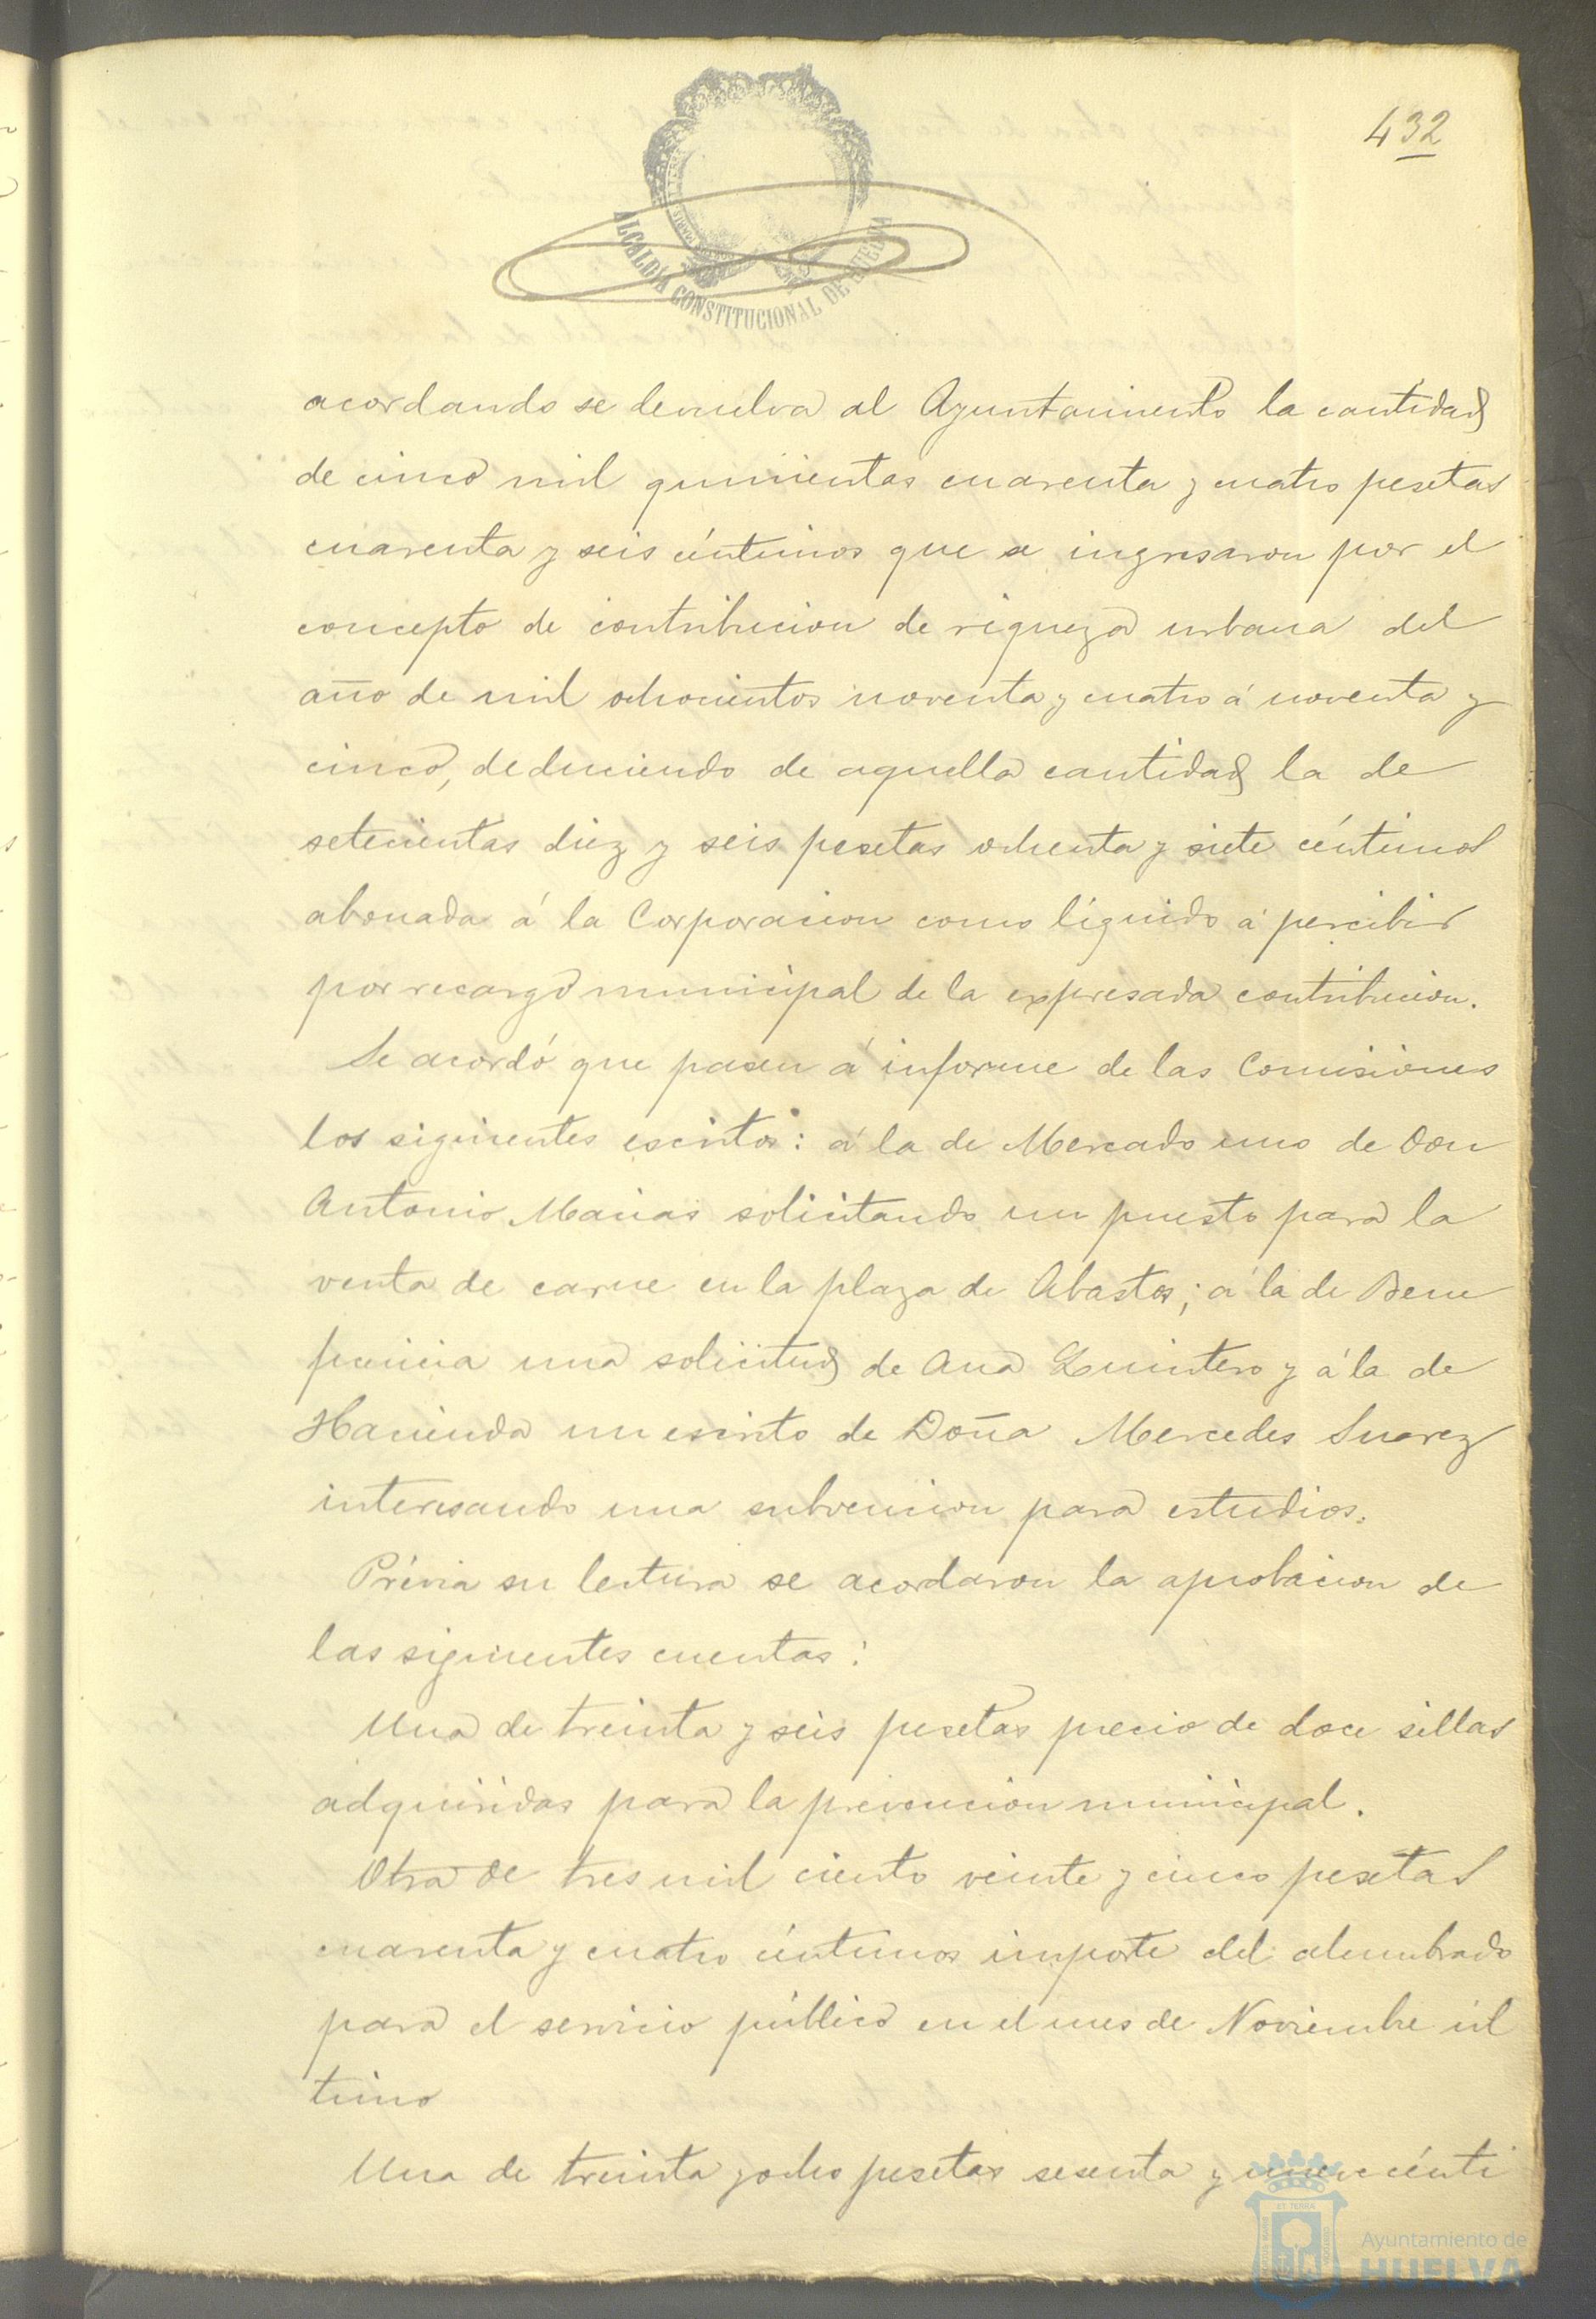 432
ALCALDÍA CONSTITUCIONAL DE HUELVA
acordando se devuelva al Ayuntamiento la cantidad
de cinco mil quinientas cuarenta y cuatro pesetas
cuarenta y seis céntimos que se ingresaron por el
concepto de contribucion de riqueza urbana del
año de mil ochocientos noventa y cuatro á noventa y
cinco, deduciendo de aquella cantidad la de
setecientas diez y seis pesetas ochenta y siete céntimos
abonada á la Corporacion como líquido á percibir
por recargo municipal de la expresada contribucion.
Se acordó que pasen á informe de las Comisiones
los siguientes escritos: á la de Mercado uno de Don
Antonio Macias solicitando un puesto para la
venta de carne en la plaza de Abastos; á la de Bene
ficencia una solicitud de Ana Quintero y á la de
Hacienda un escrito de Doña Mercedes Suarez
interesando una subvencion para estudios.
Prévia su lectura se acordaron la aprobacion de
las siguientes cuentas:
Una de treinta y seis pesetas precio de doce sillas
adquiridas para la prevencion municipal.
Otra de tres mil ciento veinte y cinco pesetas
cuarenta y cuatro céntimos importe del alumbrado
para el servicio público en el mes de Noviembre úl
timo
Una de treinta y ocho pesetas sesenta y nueve cénti
Ayuntamiento de
HUELVA